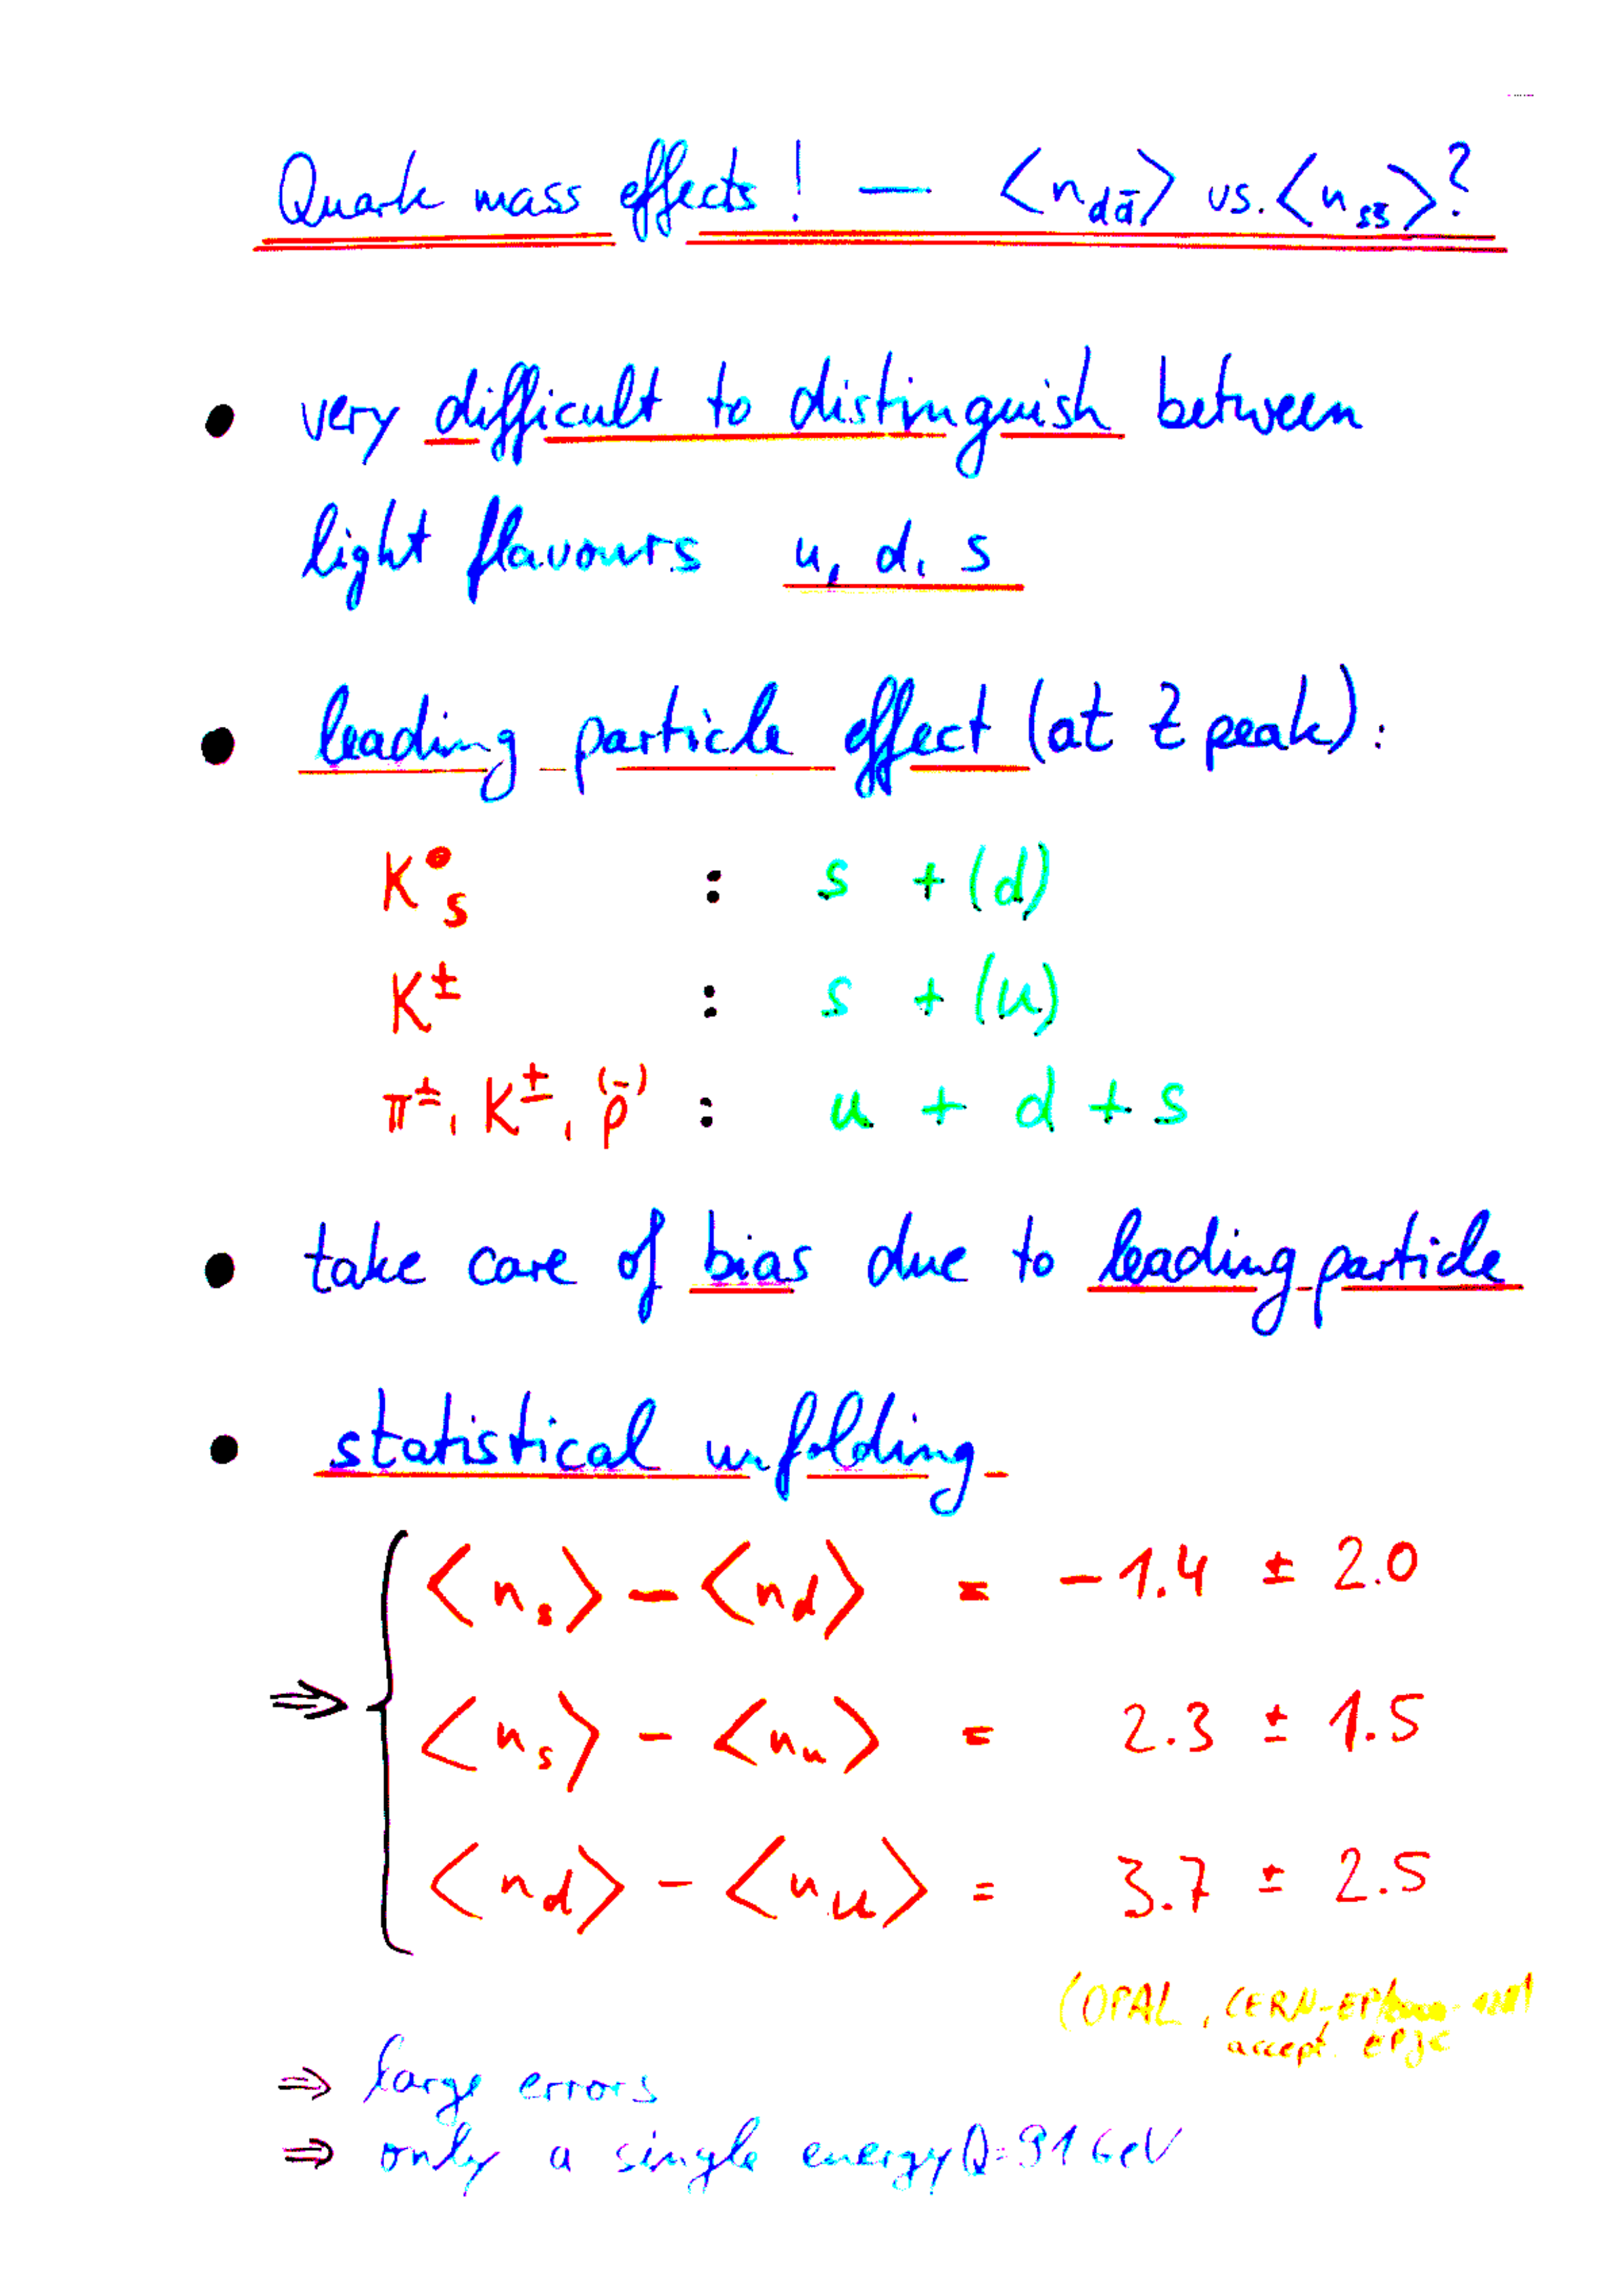 Quark mass effects! — ⟨n_dd̄⟩ vs. ⟨n_ss̄⟩?
• very difficult to distinguish between
light flavours u, d, s
• leading particle effect (at Z peak):
K⁰_s : s + (d)
K± : s + (u)
π±, K±, p⁽⁻⁾ : u + d + s
• take care of bias due to leading particle
• statistical unfolding
⇒ { ⟨n_s⟩ − ⟨n_d⟩ = −1.4 ± 2.0
⟨n_s⟩ − ⟨n_u⟩ = 2.3 ± 1.5
⟨n_d⟩ − ⟨n_u⟩ = 3.7 ± 2.5
(OPAL, CERN-EP/
accept. EPJC
⇒ large errors
⇒ only a single energy Q=91 GeV